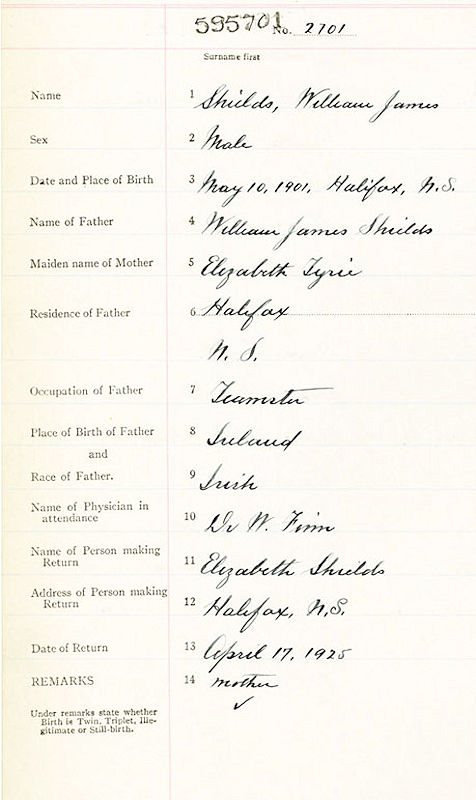 595701 No. 2701
Surname first
Name 1 Shields, William James
Sex 2 Male
Date and Place of Birth 3 May 10, 1901, Halifax, N.S.
Name of Father 4 William James Shields
Maiden name of Mother 5 Elizabeth Tyrie
Residence of Father 6 Halifax
N. S.
Occupation of Father 7 Teamster
Place of Birth of Father 8 Ireland
and
Race of Father. 9 Irish
Name of Physician in
attendance 10 Dr W. Finn
Name of Person making
Return 11 Elizabeth Shields
Address of Person making
Return 12 Halifax, N.S.
Date of Return 13 April 17, 1925
REMARKS 14 mother
Under remarks state whether
Birth is Twin, Triplet, Ille-
gitimate or Still-birth.